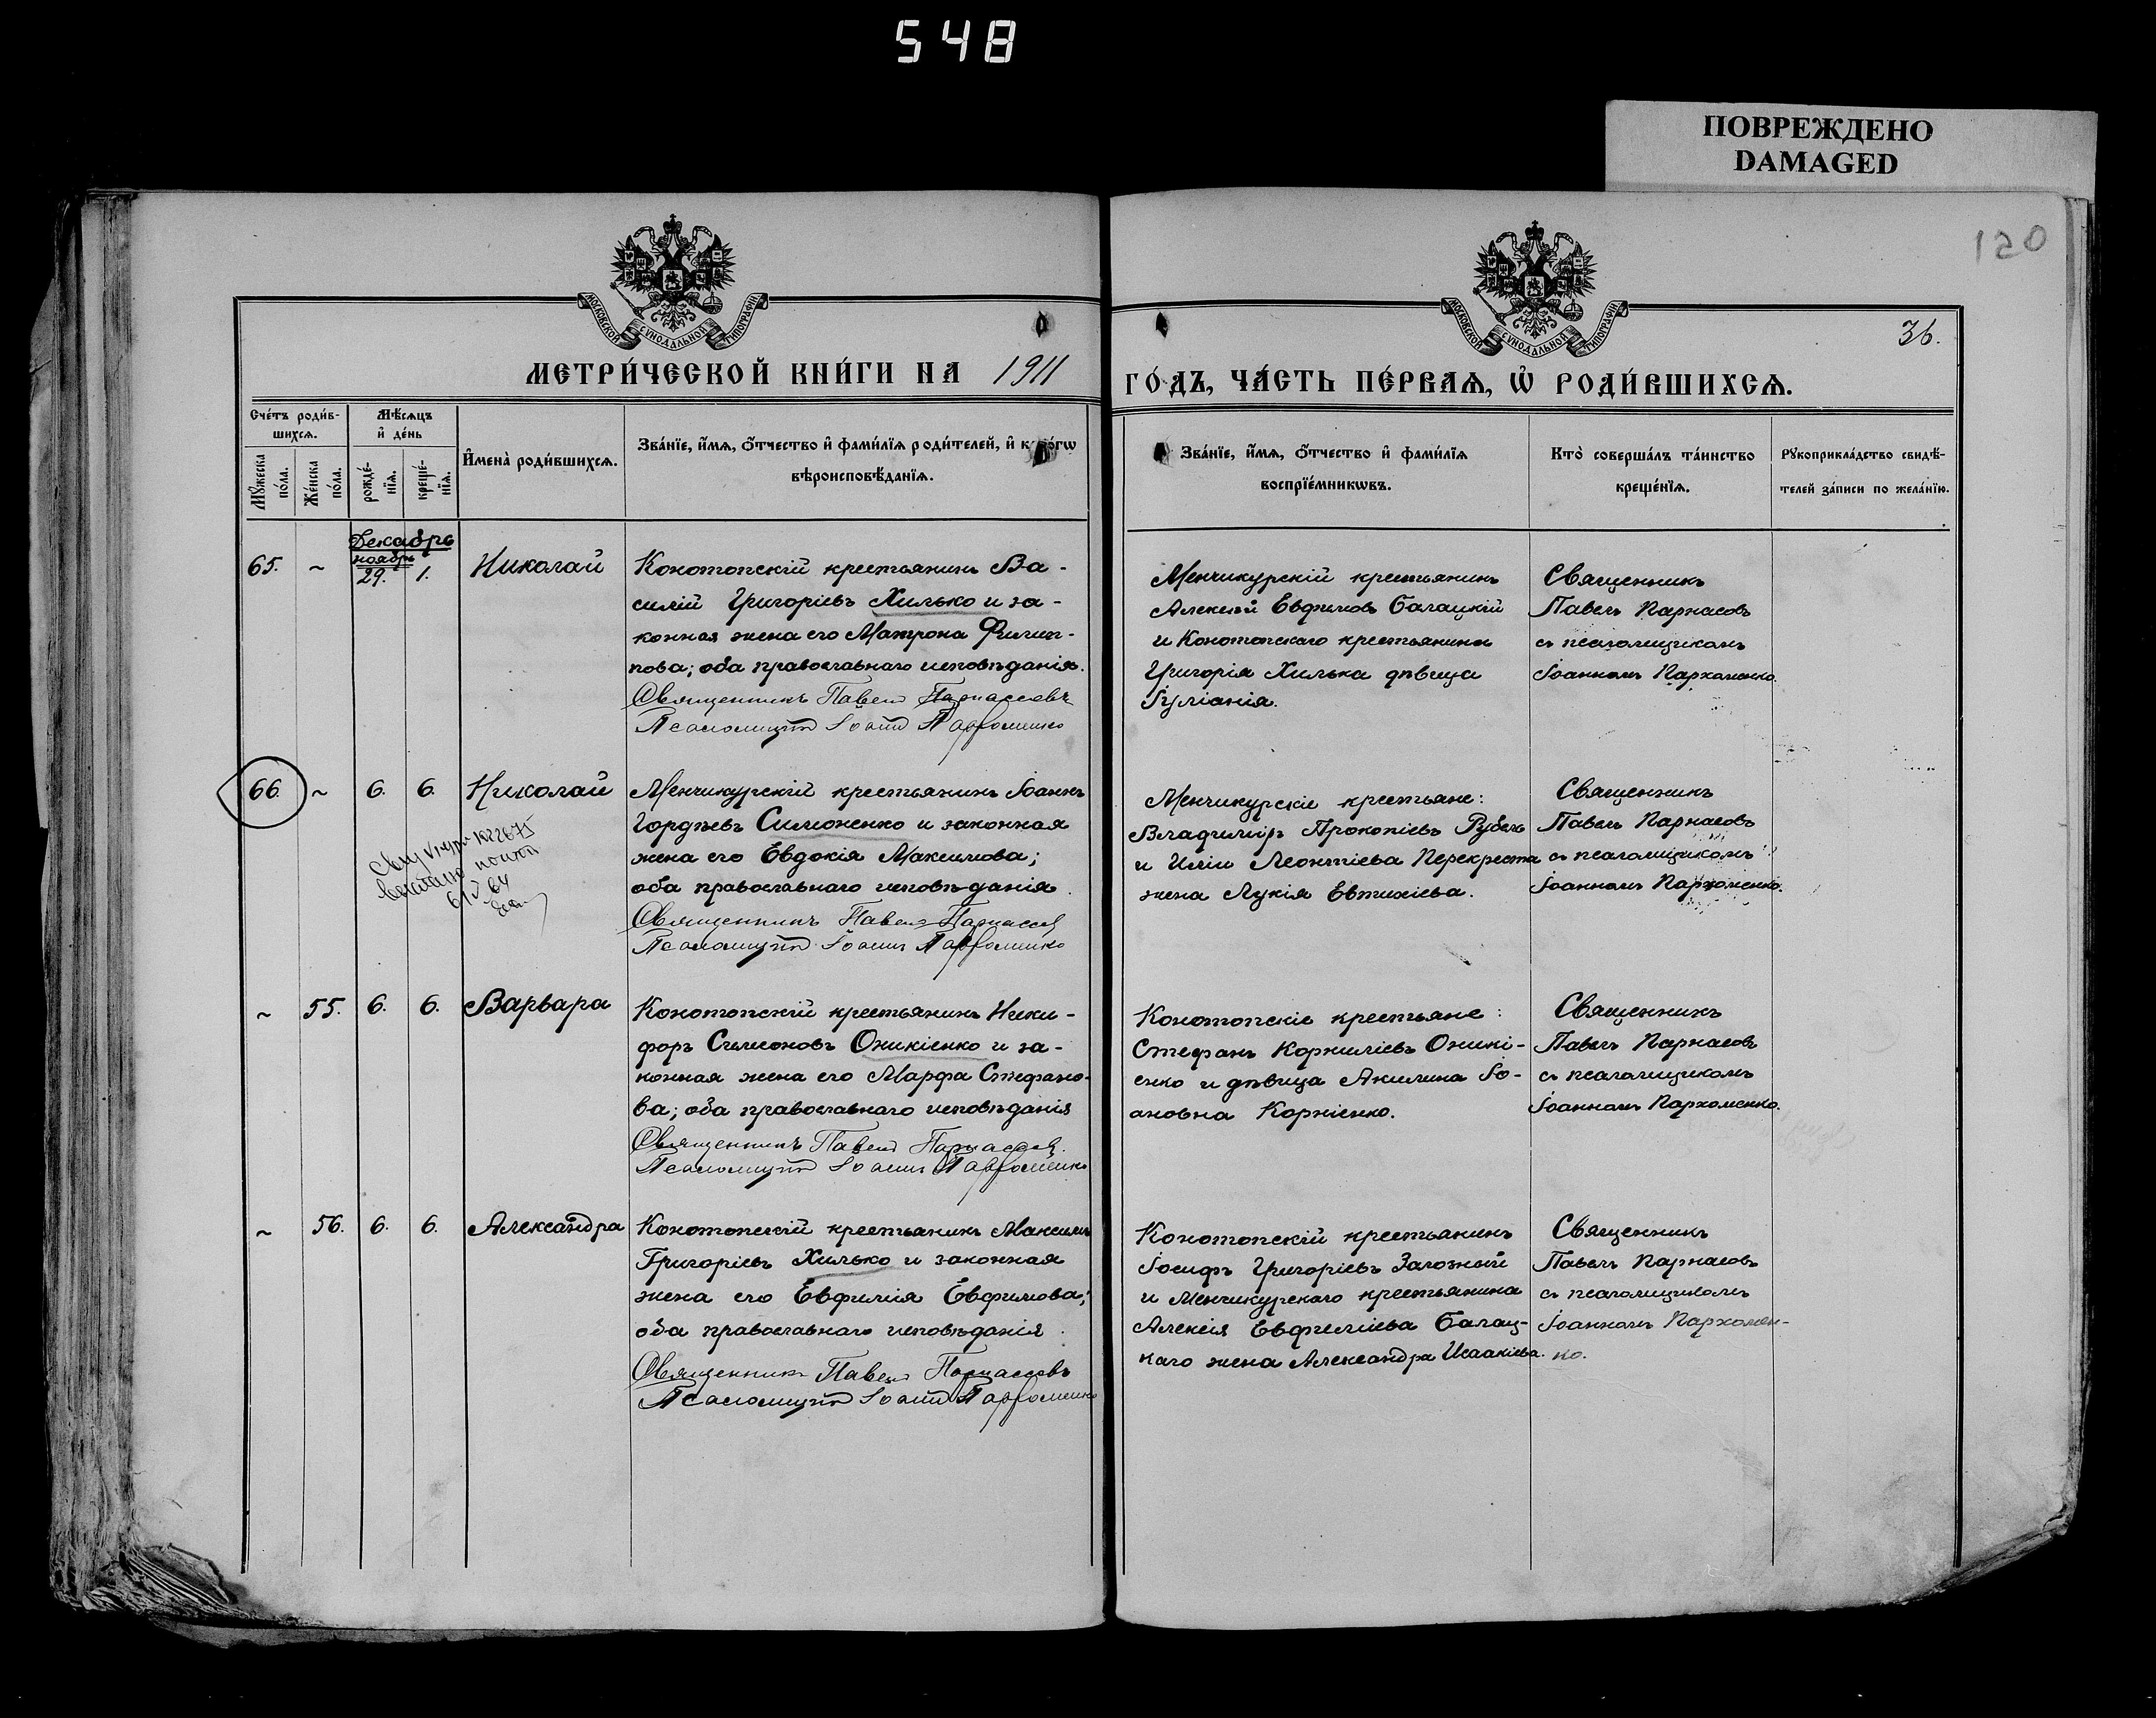 548
ПОВРЕЖДЕНО
DAMAGED
120
МОСКОВСКОЙ СѴНОДАЛЬНОЙ ТИПОГРАФІИ
МОСКОВСКОЙ СѴНОДАЛЬНОЙ ТИПОГРАФІИ
36.
МЕТРИ́ЧЕСКОЙ КНИ́ГИ НА 1911
ГО́ДЪ, ЧА́СТЬ ПЕ́РВАѦ, Ѡ҆ РОДИ́ВШИХСѦ.
Сче́тъ роди́в-
шихсѧ.
Мѣ́сѧцъ
и҆ де́нь
Мꙋ́жеска
по́ла.
Же́нска
по́ла.
рожде́-
нїѧ.
креще́-
нїѧ.
И҆мена̀ роди́вшихсѧ.
Зва́нїе, и҆́мѧ, ѻ҆́тчество и҆ фами́лїѧ роди́телей, и҆ како́гѡ
вѣроисповѣ́данїѧ.
Зва́нїе, и҆́мѧ, ѻ҆́тчество и҆ фами́лїѧ
воспрїе́мникѡвъ.
Кто̀ соверша́лъ та́инство
креще́нїѧ.
Рꙋкоприкла́дство свидѣ́-
телей за́писи по жела́нїю.
Декабрь
ноябрь
65. ~ 29. 1. Николай
Конотопскій крестьянинъ Ва-
силій Григоріевъ Хилько и за-
конная жена его Матрона Филип-
пова; оба православнаго исповѣданія.
Священникъ Павелъ Парнассовъ
Псаломщикъ Іоаннъ Пархоменко
Менчикурскій крестьянинъ
Алексѣй Евфимовъ Балацкій
и Конотопскаго крестьянина
Григорія Хилька дѣвица
Іуліанія.
Священникъ
Павелъ Парнасовъ
съ псаломщикомъ
Іоанномъ Пархоменко.
66. ~ 6. 6. Николай
Менчикурскій крестьянинъ Іоаннъ
Гордѣевъ Симоненко и законная
жена его Евдокія Максимова;
оба православнаго исповѣданія.
Священникъ Павелъ Парнассовъ
Псаломщикъ Іоаннъ Пархоменко
Менчикурскіе крестьяне:
Владиміръ Прокопіевъ Рубель
и Иліи Леонтіева Перекреста
жена Лукія Евтихіева.
Священникъ
Павелъ Парнасовъ
съ псаломщикомъ
Іоанномъ Пархоменко.
~ 55. 6. 6. Варвара
Конотопскій крестьянинъ Ники-
форъ Симеоновъ Оникіенко и за-
конная жена его Марфа Стефано-
ва; оба православнаго исповѣданія
Священникъ Павелъ Парнассовъ.
Псаломщикъ Іоаннъ Пархоменко
Конотопскіе крестьяне:
Стефанъ Корниліевъ Оникі-
енко и дѣвица Акилина Іо-
ановна Корніенко.
Священникъ
Павелъ Парнасовъ
съ псаломщикомъ
Іоанномъ Пархоменко.
~ 56. 6. 6. Александра
Конотопскій крестьянинъ Максимъ
Григоріевъ Хилько и законная
жена его Евфимія Евфимова;
оба православнаго исповѣданія.
Священникъ Павелъ Парнассовъ
Псаломщикъ Іоаннъ Пархоменко
Конотопскій крестьянинъ
Іосифъ Григоріевъ Заложный
и Менчикурскаго крестьянина
Алексія Евфиміева Балац-
каго жена Александра Исаакіева.
Священникъ
Павелъ Парнасовъ
съ псаломщикомъ
Іоанномъ Пархомен-
ко.